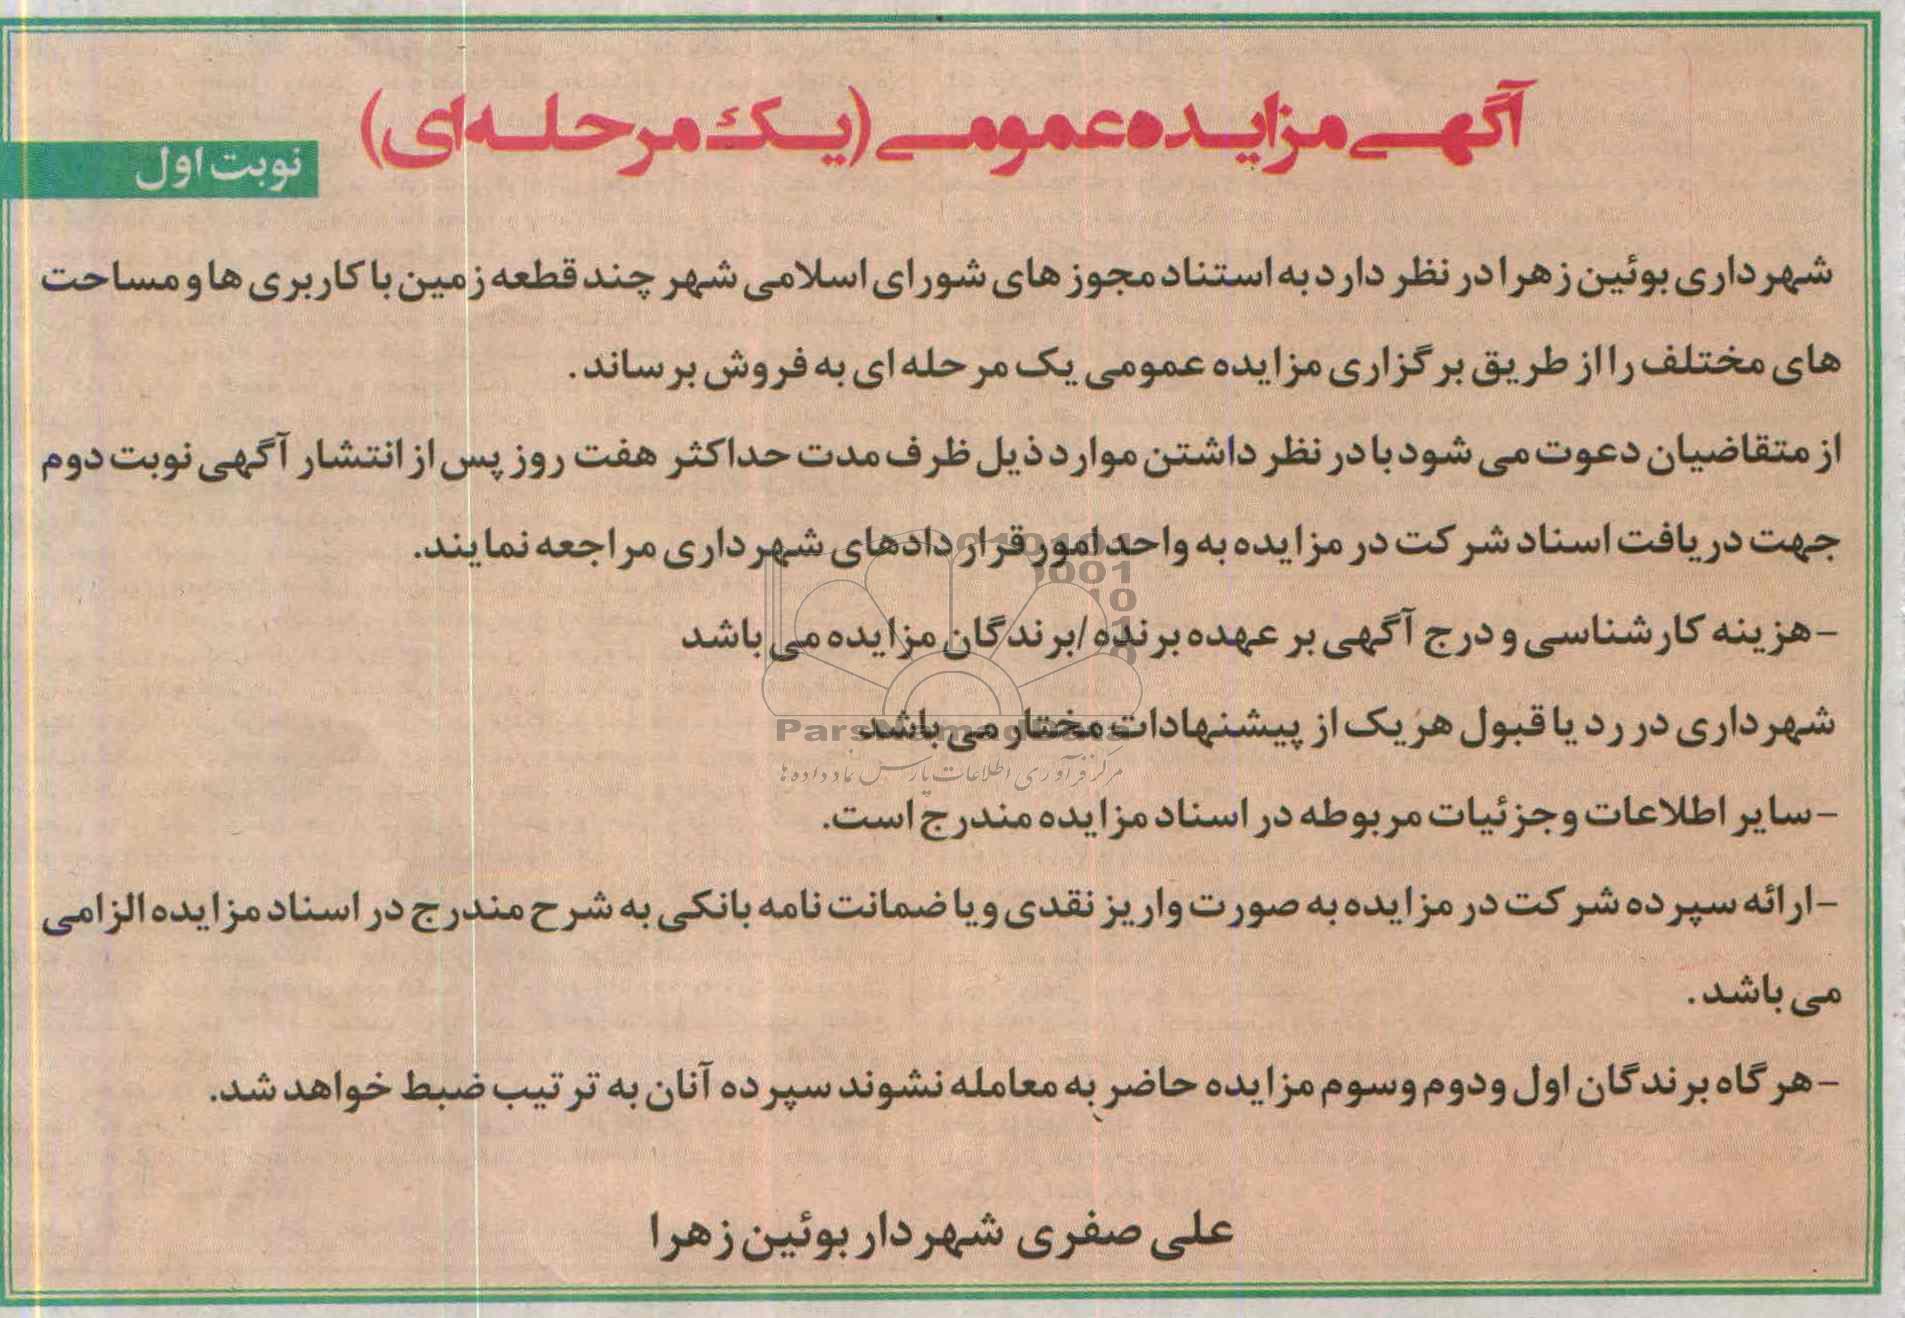 آگهی مزایده عمومی (یک مرحله ای)
نوبت اول
شهرداری بوئین زهرا در نظر دارد به استناد مجوز های شورای اسلامی شهر چند قطعه زمین با کاربری ها و مساحت
های مختلف را از طریق برگزاری مزایده عمومی یک مرحله ای به فروش برساند.
از متقاضیان دعوت می شود با در نظر داشتن موارد ذیل ظرف مدت حداکثر هفت روز پس از انتشار آگهی نوبت دوم
جهت دریافت اسناد شرکت در مزایده به واحد امور قرار دادهای شهرداری مراجعه نمایند.
-هزینه کارشناسی و درج آگهی بر عهده برنده /برندگان مزایده می باشد
شهرداری در رد یا قبول هر یک از پیشنهادات مختار می باشد
ParsNamadData
مرکز فرآوری اطلاعات پارس نماد داده ها
-سایر اطلاعات و جزئیات مربوطه در اسناد مزایده مندرج است.
-ارائه سپرده شرکت در مزایده به صورت واریز نقدی و یا ضمانت نامه بانکی به شرح مندرج در اسناد مزایده الزامی
می باشد.
-هر گاه برندگان اول و دوم و سوم مزایده حاضر به معامله نشوند سپرده آنان به ترتیب ضبط خواهد شد.
علی صفری شهردار بوئین زهرا